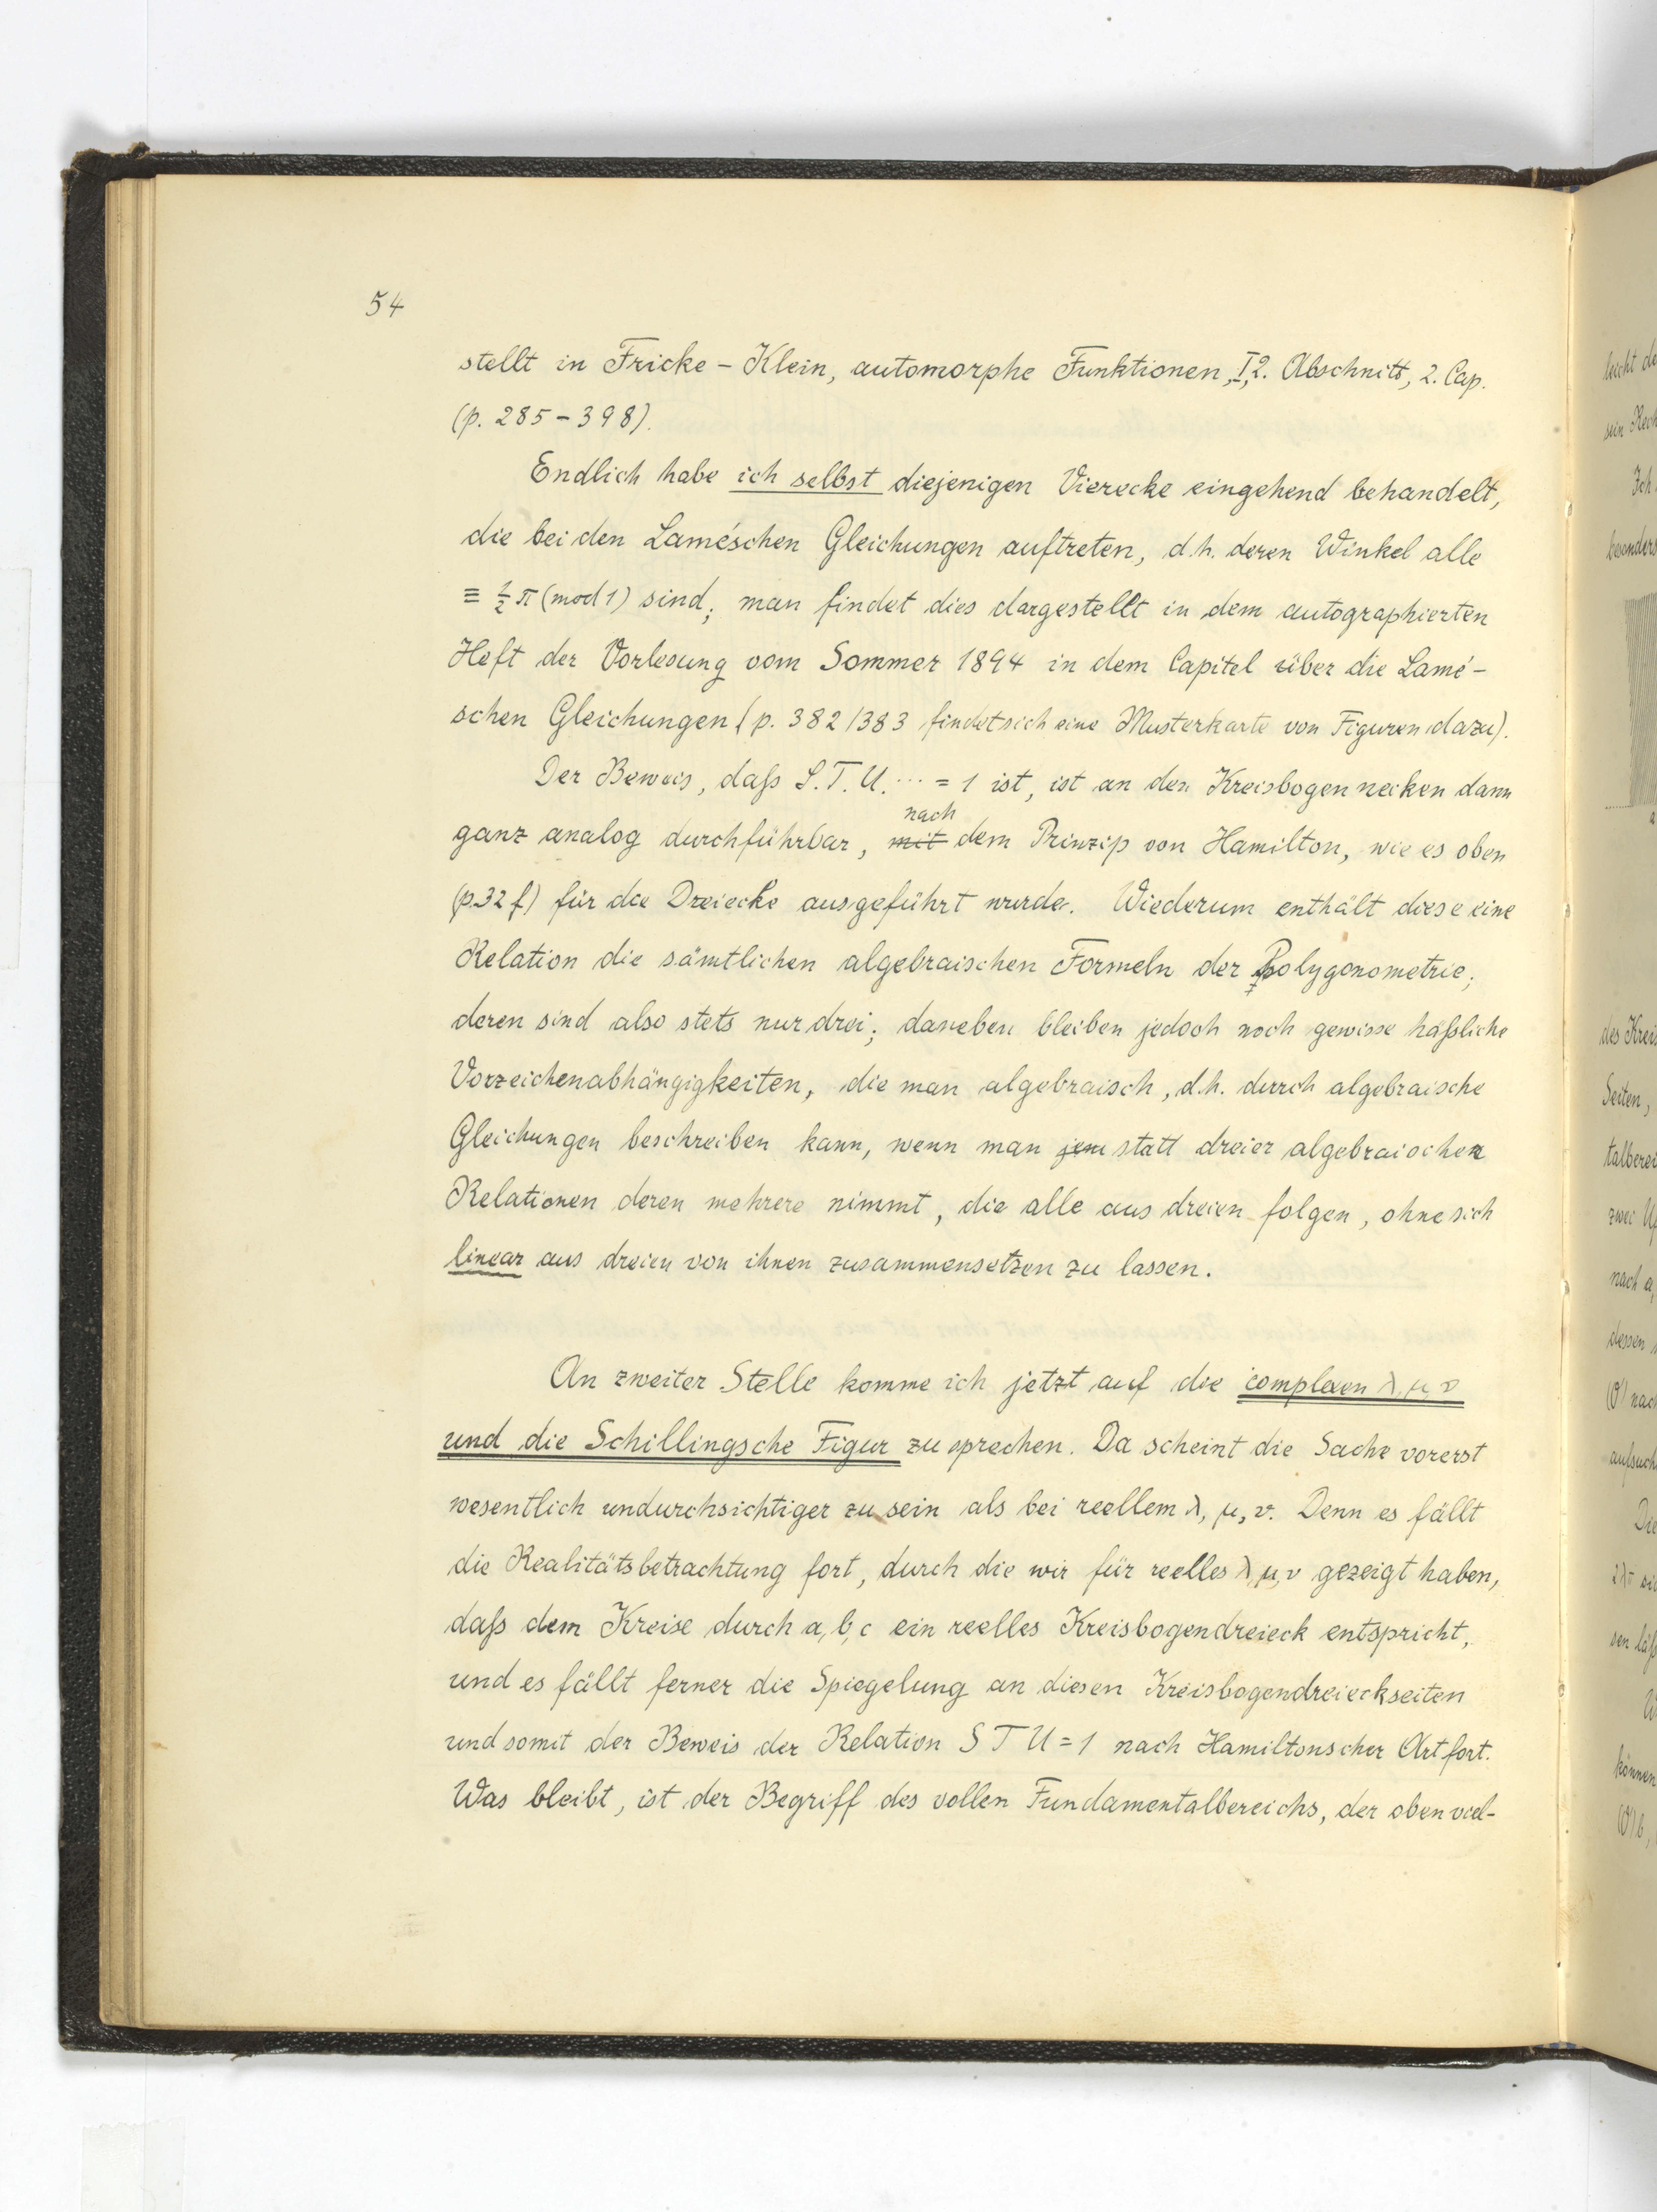 54
stellt in Fricke - Klein, automorphe Funktionen, I, 2. Abschnitt, 2. Cap.
(p. 285 - 398).
Endlich habe ich selbst diejenigen Vierecke eingehend behandelt,
die bei den Lamé'schen Gleichungen auftreten, d.h. deren Winkel alle
≡ ½ π (mod 1) sind; man findet dies dargestellt in dem autographierten
Heft der Vorlesung vom Sommer 1894 in dem Capitel über die Lamé-
schen Gleichungen (p. 382/383 findet sich eine Musterkarte von Figuren dazu).
Der Beweis, daß S. T. U. ... = 1 ist, ist an den Kreisbogen necken dann
nach
ganz analog durchführbar, mit dem Prinzip von Hamilton, wie es oben
(p. 32 f) für die Dreiecke ausgeführt wurde. Wiederum enthält diese eine
Relation die sämtlichen algebraischen Formeln der Polygonometrie;
deren sind also stets nur drei; daneben bleiben jedoch noch gewisse häßliche
Vorzeichenabhängigkeiten, die man algebraisch, d.h. durch algebraische
Gleichungen beschreiben kann, wenn man statt dreier algebraischen
Relationen deren mehrere nimmt, die alle aus dreien folgen, ohne sich
linear aus dreien von ihnen zusammensetzen zu lassen.
An zweiter Stelle komme ich jetzt auf die complexen λ, μ, ν
und die Schillingsche Figur zu sprechen. Da scheint die Sache vorerst
wesentlich undurchsichtiger zu sein als bei reellem λ, μ, ν. Denn es fällt
die Realitätsbetrachtung fort, durch die wir für reelles λ, μ, ν gezeigt haben,
daß dem Kreise durch a, b, c ein reelles Kreisbogendreieck entspricht,
und es fällt ferner die Spiegelung an diesen Kreisbogendreieckseiten
und somit der Beweis der Relation S T U = 1 nach Hamiltonscher Art fort.
Was bleibt, ist der Begriff des vollen Fundamentalbereichs, der oben viel-